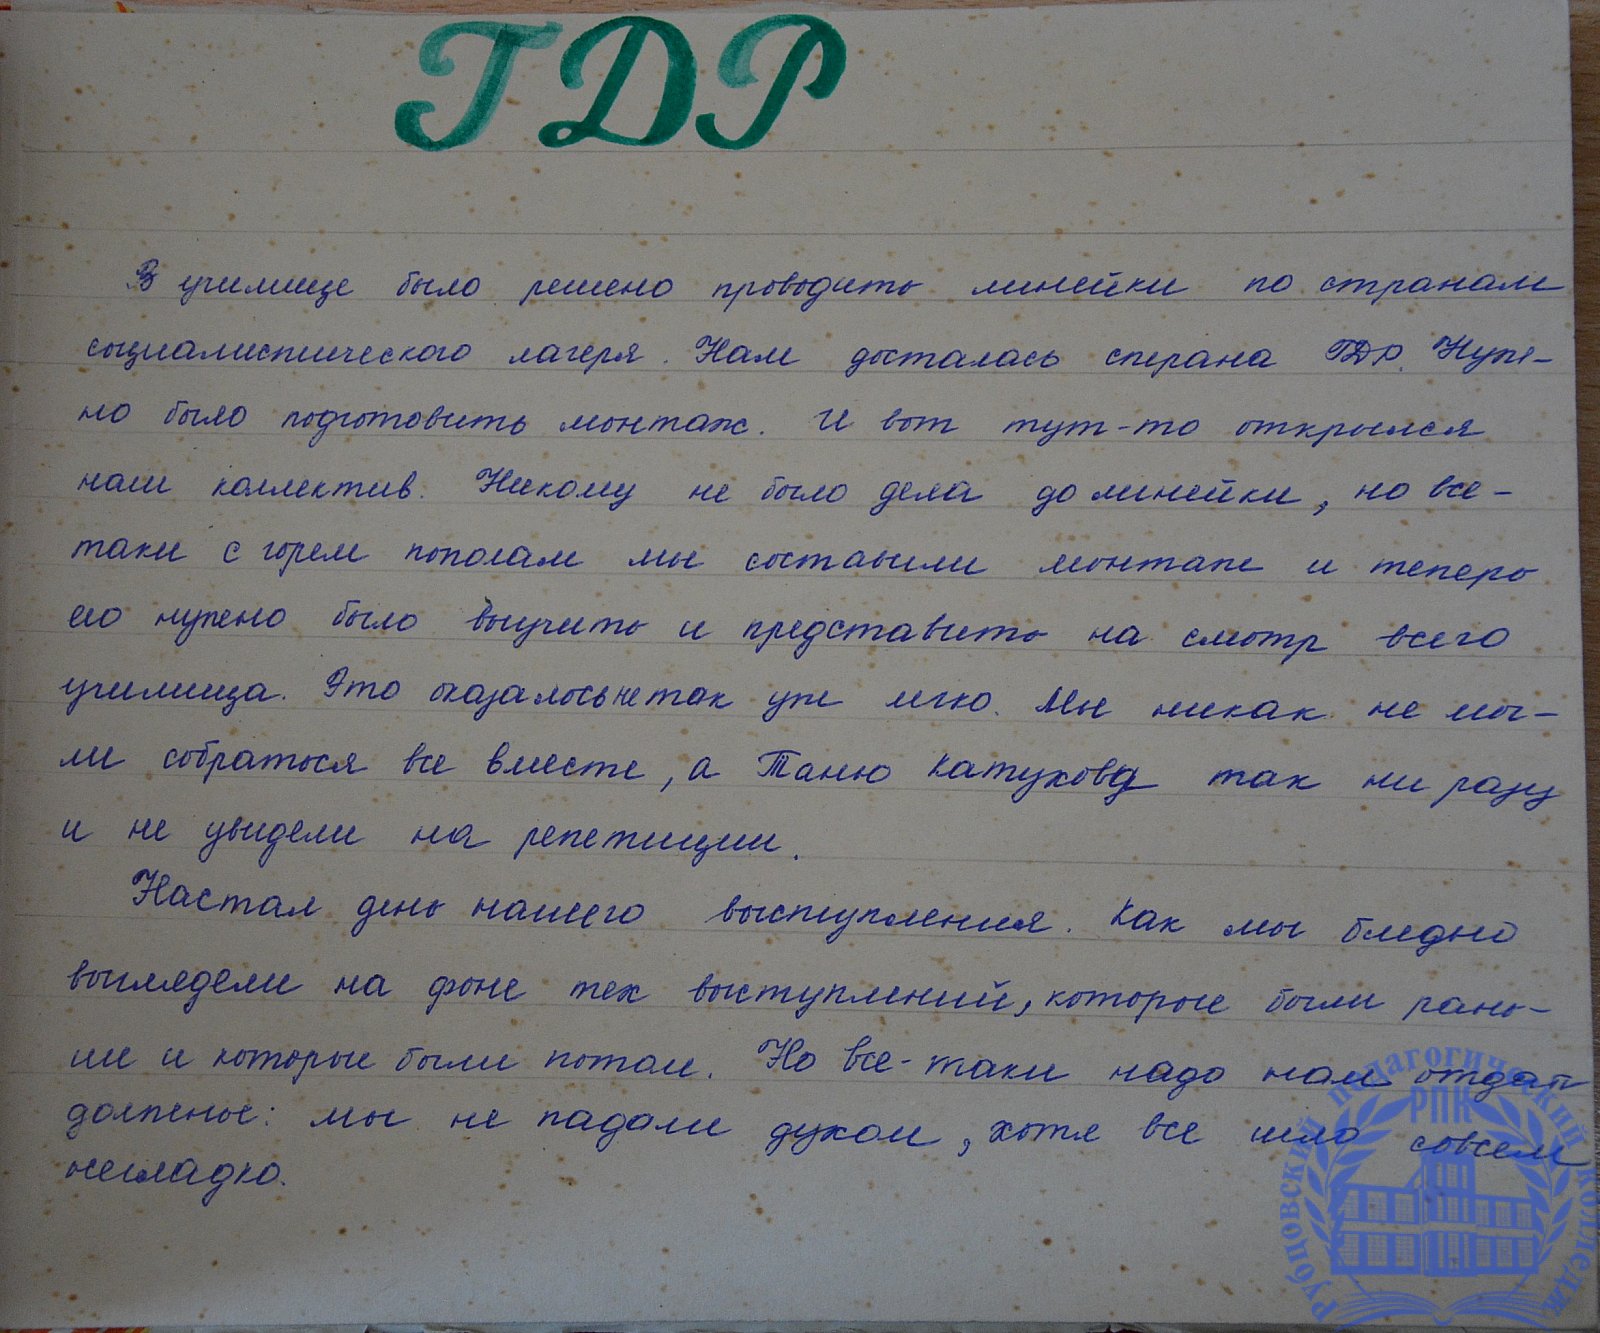 ГДР
В училище было решено проводить линейки по странам
социалистического лагеря. Нам досталась страна ГДР. Нуж-
но было подготовить монтаж. И вот тут-то открылся
наш коллектив. Никому не было дела до линейки, но все-
таки с горем пополам мы составили монтаж и теперь
его нужно было выучить и представить на смотр всего
училища. Это оказалось не так уж легко. Мы никак не мог-
ли собраться все вместе, а Таню Катукову так ни разу
и не увидели на репетиции.
Настал день нашего выступления. Как мы бледно
выглядели на фоне тех выступлений, которые были рань-
ше и которые были потом. Но все-таки надо нам отдать
должное: мы не падали духом, хотя все шло совсем
негладко.
Рубцовский педагогический колледж
РПК